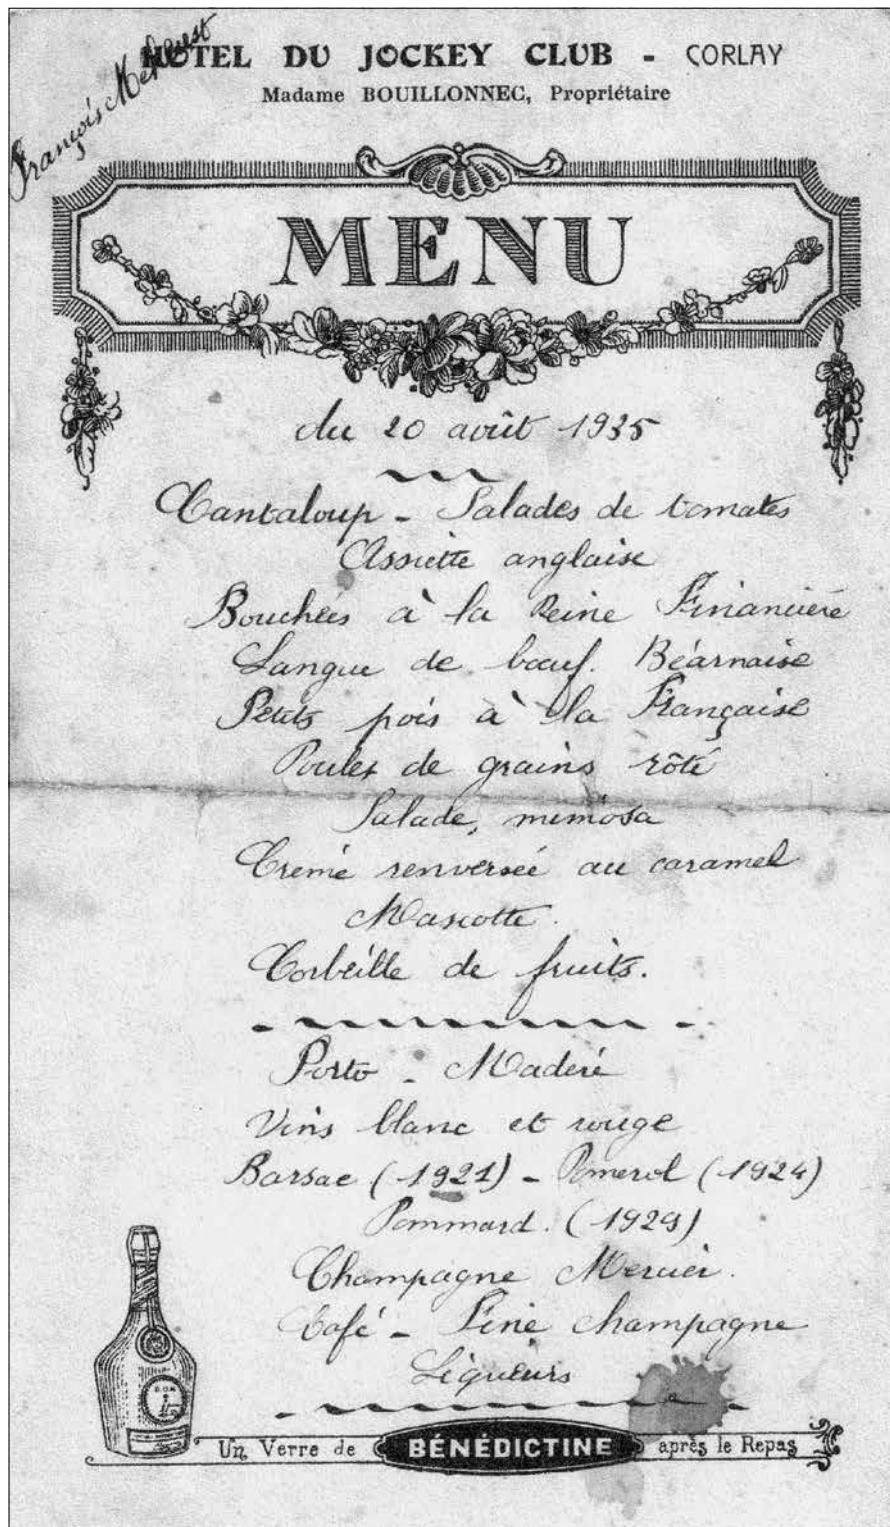 HÔTEL DU JOCKEY CLUB - CORLAY
Madame BOUILLONNEC, Propriétaire
François
MENU
du 20 août 1935
Cantaloup - Salades de tomates
Assiette anglaise
Bouchées à la Reine Financière
Langue de bœuf. Béarnaise
Petits pois à la Française
Poulet de grains rôti
Salade, mimosa
Crème renversée au caramel
Mascotte.
Corbeille de fruits.
Porto - Madère
Vins blanc et rouge
Barsac (1921) - Pomerol (1924)
Pommard. (1929)
Champagne Mercier.
Café - Fine champagne
Liqueurs
Un Verre de BÉNÉDICTINE après le Repas